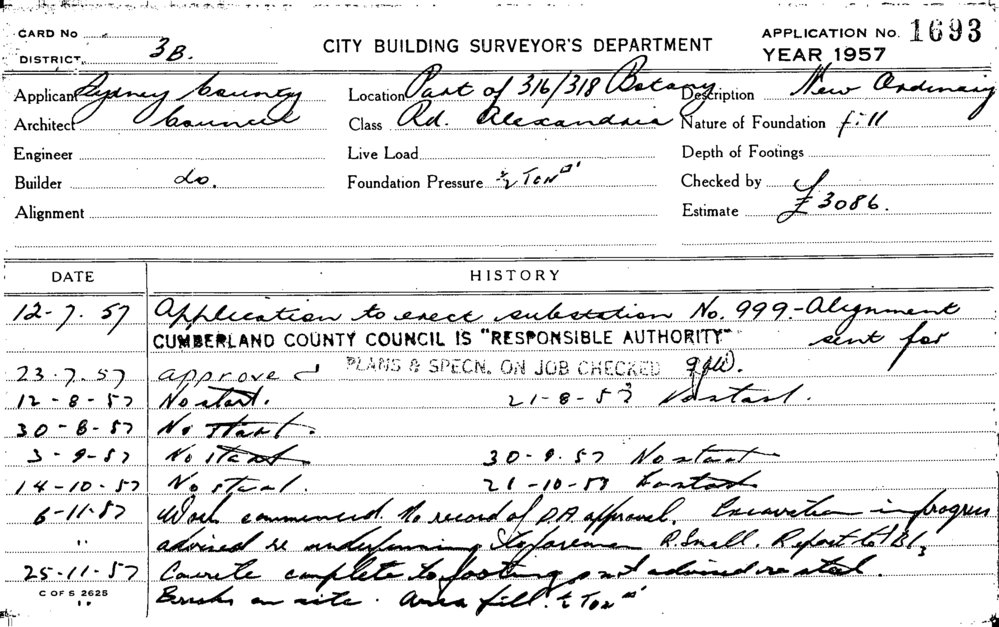 CARD No
DISTRICT. 3B.
CITY BUILDING SURVEYOR'S DEPARTMENT
APPLICATION No. 1693
YEAR 1957
Applicant Sydney County
Location Part of 316/318 Botany
Description New Ordinary
Architect Council
Class Rd. Alexandria
Nature of Foundation fill
Engineer
Live Load
Depth of Footings
Builder do.
Foundation Pressure ½ Ton □'
Checked by
Alignment
Estimate £3086.
DATE HISTORY
12-7.57 Application to erect substation No. 999.-Alignment
CUMBERLAND COUNTY COUNCIL IS "RESPONSIBLE AUTHORITY" sent for
23-7.57 approved PLANS & SPECN. ON JOB CHECKED
12-8-57 No start. 21-8-57 No start.
30-8-57 No start.
3-9-57 No start 30-9.57 No start
14-10-57 No start. 21-10-57 No start
6-11-57 Work commenced. No record of D.A approval. Excavation in progress
" advised re underpinning to foreman R. Small. Report to
25-11-57 complete to footings not advised re steel.
C OF S 2625
" Bricks on site. Area fill. ½ Ton □'